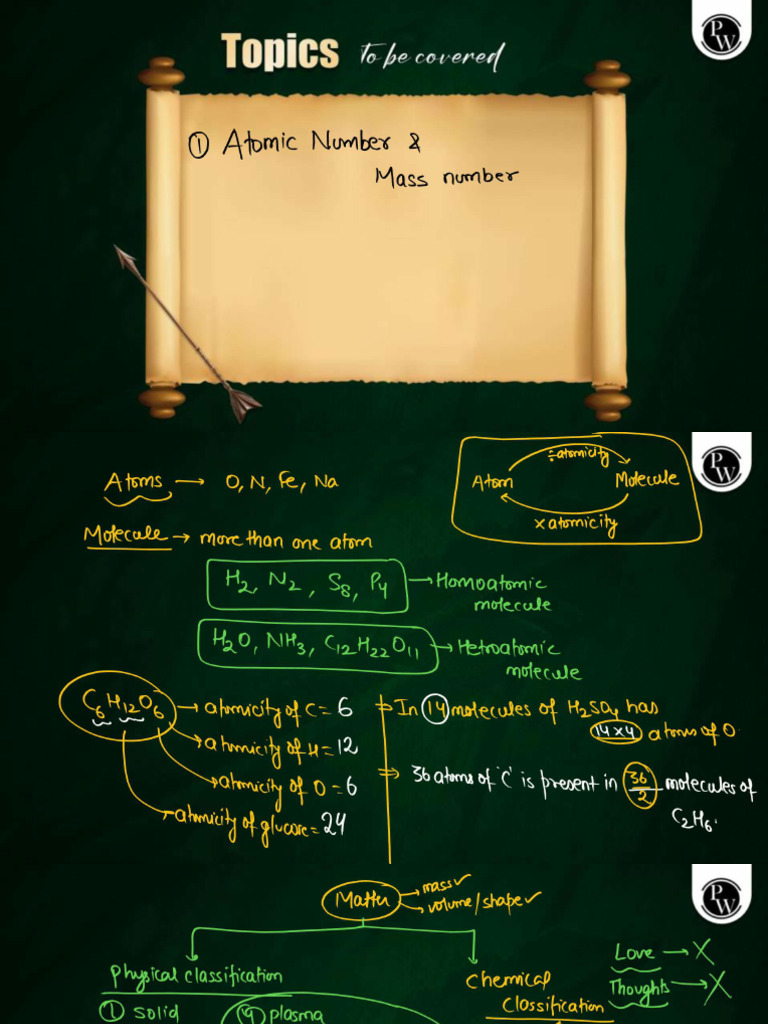 Topics To be covered
PW
① Atomic Number &
Mass number
PW
Atoms → O, N, Fe, Na
Atom ÷atomicity Molecule
×atomicity
Molecule → more than one atom
H2, N2, S8, P4 → Homoatomic
molecule
H2O, NH3, C12H22O11 → Hetroatomic
molecule
C6H12O6 → atomicity of C = 6
→ atomicity of H = 12
→ atomicity of O = 6
→ atomicity of glucose = 24
⇒ In 14 molecules of H2SO4 has
14×4 atoms of O.
⇒ 36 atoms of 'C' is present in 36/2 molecules of
C2H6.
PW
Matter → mass✓
→ volume/shape✓
Physical classification
① solid ④ plasma
Chemical
Classification
Love → X
Thoughts → X